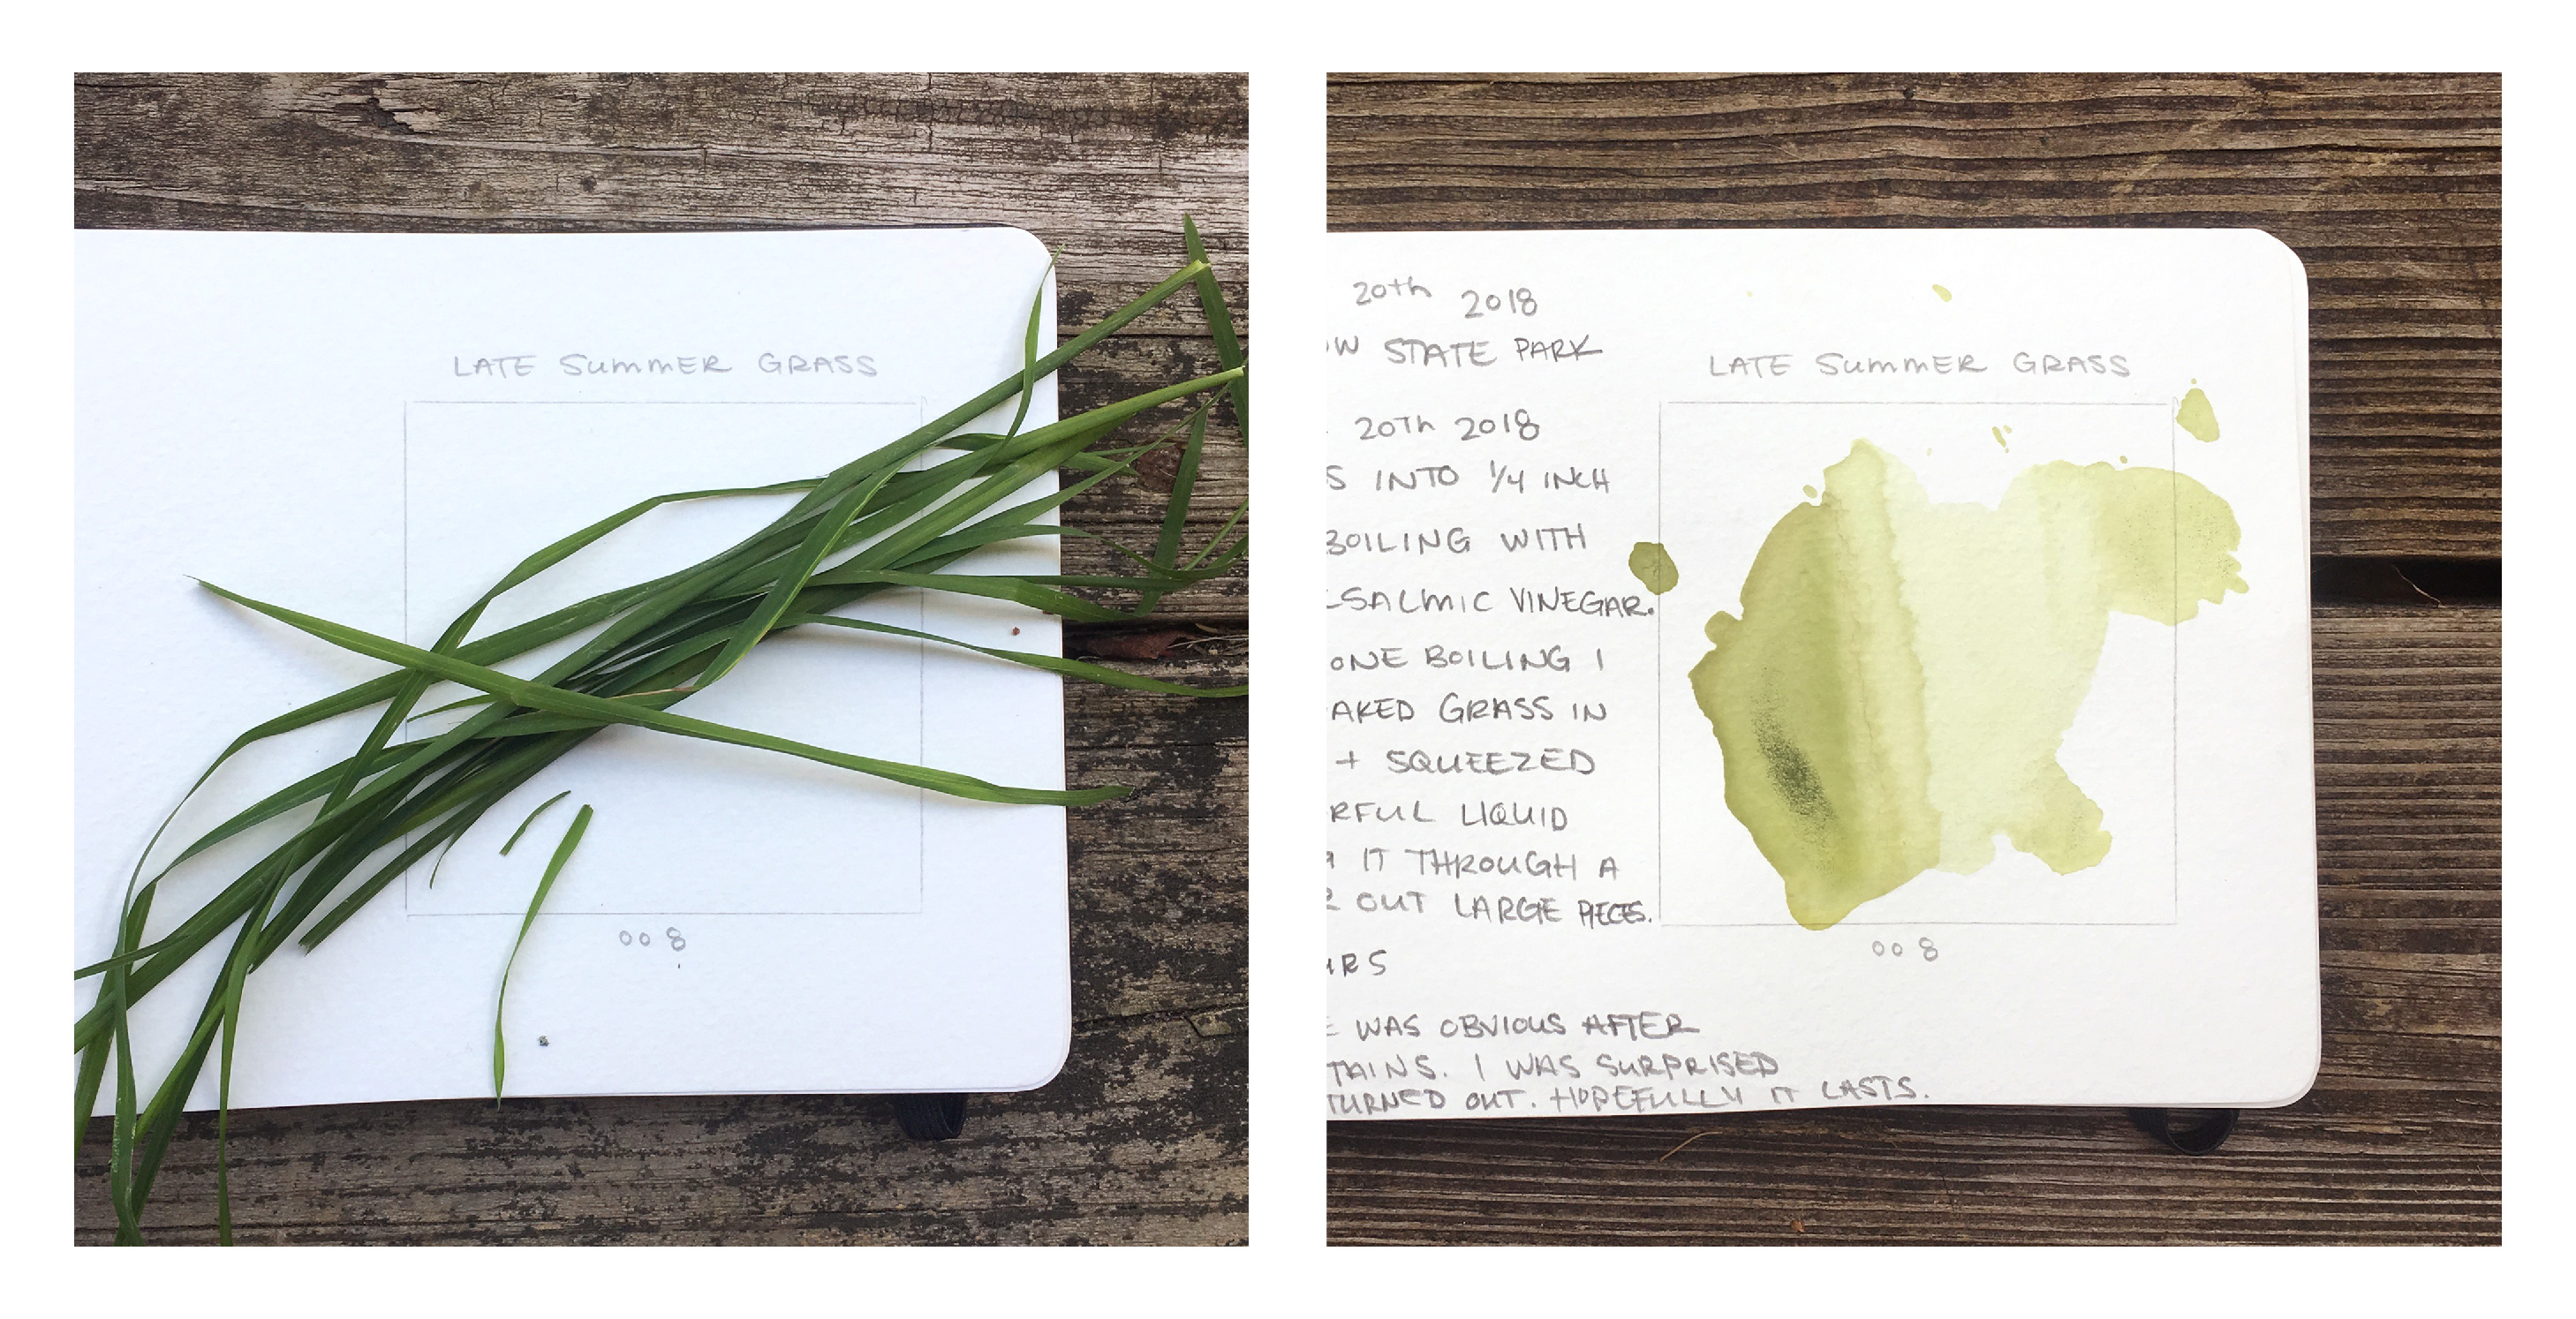 LATE SUMMER GRASS
008
20th 2018
OW STATE PARK
LATE SUMMER GRASS
20TH 2018
S INTO 1/4 INCH
BOILING WITH
LSALMIC VINEGAR.
ONE BOILING I
AKED GRASS IN
+ SQUEEZED
RFUL LIQUID
IT THROUGH A
R OUT LARGE PIECES.
008
URS
E WAS OBVIOUS AFTER
TAINS. I WAS SURPRISED
TURNED OUT. HOPEFULLY IT LASTS.